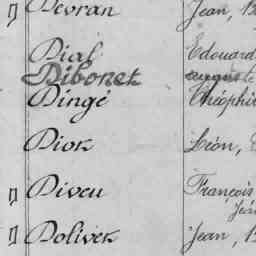 Devran Jean, B
Dial Edouard
Dibonet auguste
Dingé Théophi
Diot Léon,
Diveu François
Jean
Doliver Jean, B